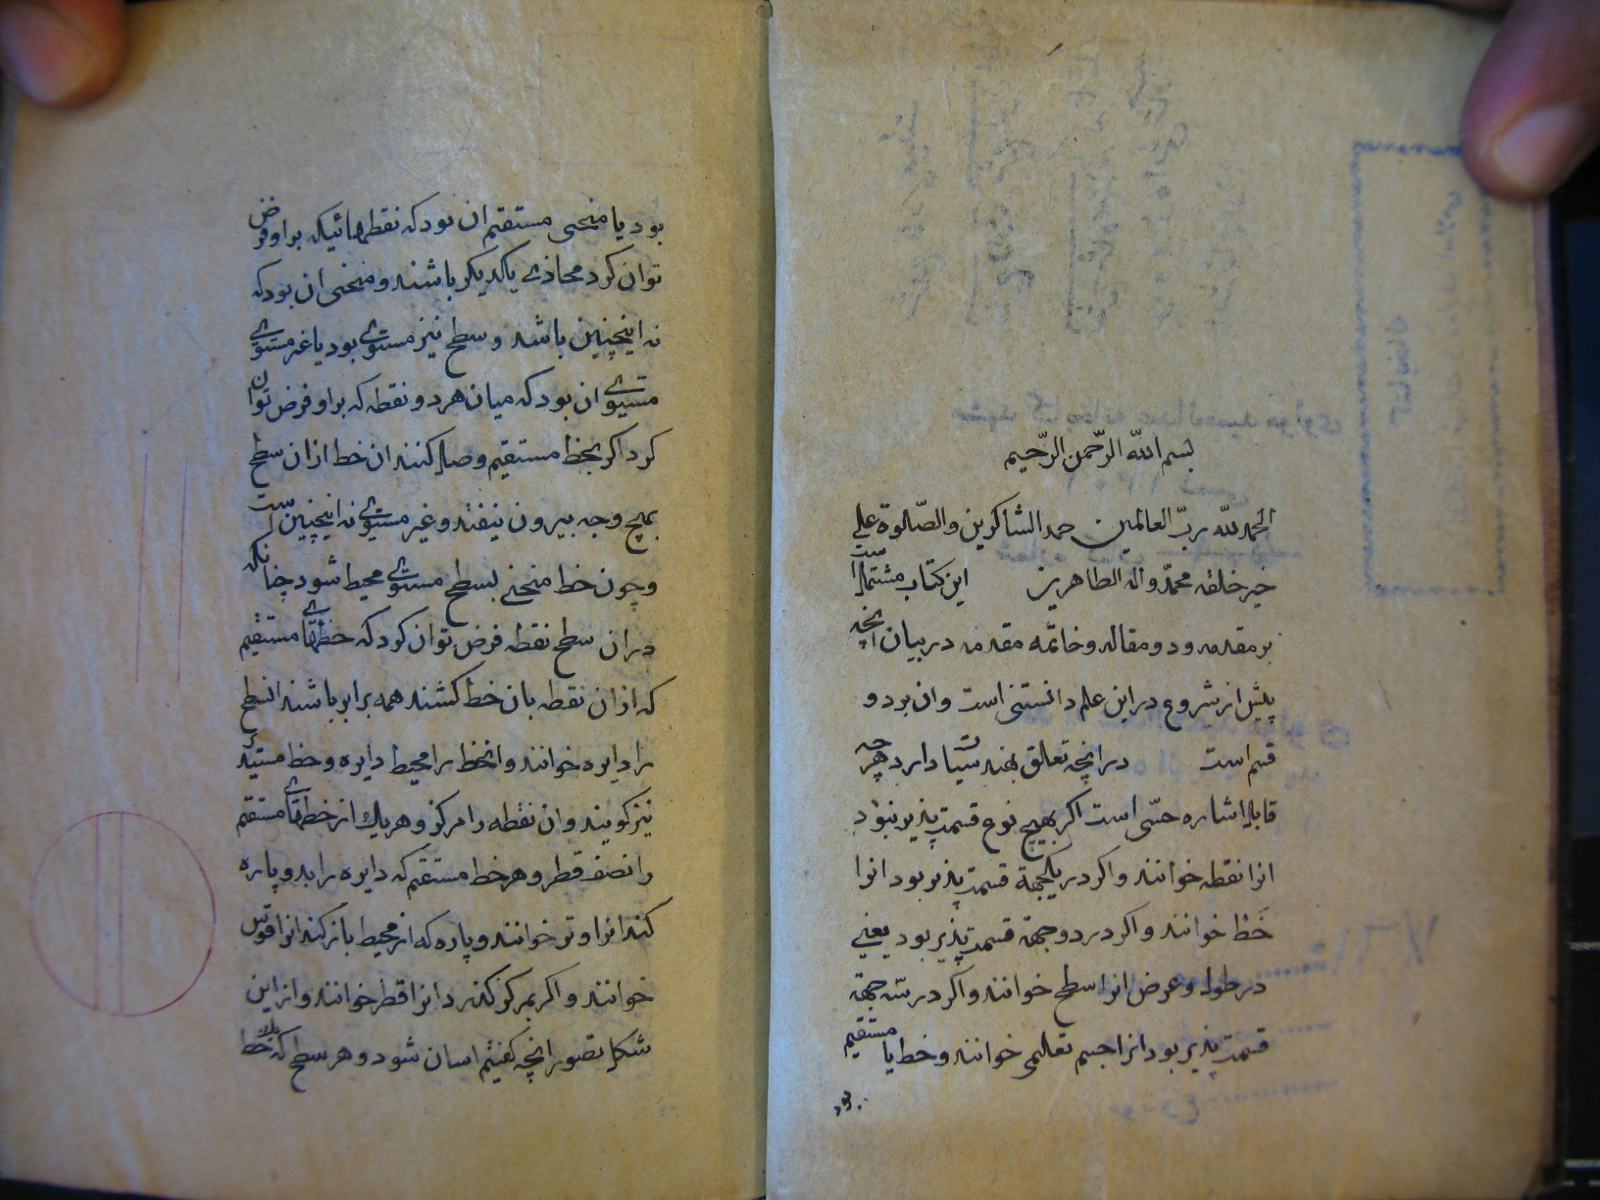 بسم الله الرّحمن الرّحیم
الحمد لله ربّ العالمین حمد الشاکرین و الصّلوة علی
خیر خلقه محمّد و اله الطاهرین این کتاب مشتمل است
بر مقدمه و دو مقاله و خاتمه مقدمه در بیان انچه
پیش از شروع در این علم دانستنی است و ان بر دو
قسم است در انچه تعلق بهندسیات دارد هر چه
قابل اشاره حسّی است اکر بهیچ نوع قسمت پذیر نبود
انرا نقطه خوانند و اکر در یکجهة قسمت پذیر بود انرا
خَط خوانند و اکر در دو جهة قسمت پذیر بود یعنی
در طول و عرض انرا سطح خوانند و اکر در سه جهة
قسمت پذیر بود انرا جسم تعلیمی خوانند و خط یا مستقیم
بود یا منحنی مستقیم ان بود که نقطهائیکه بر او فرض
توان کرد محاذی یکدیکر باشند و منحنی ان بود که
نه اینچنین باشد و سطح نیز مستوی بود یا غیر مستوی
مستوی ان بود که میان هر دو نقطه که بر او فرض توان
کرد اکر بخط مستقیم وصل کنند ان خط از ان سطح
بهیچ وجه بیرون نیفتد و غیر مستوی نه اینچنین است
و چون خط منحنی بسطح مستوی محیط شود چنانکه
در ان سطح نقطه فرض توان کرد که خطهای مستقیم
که از ان نقطه بان خط کشند همه برابر باشند انسطح
را دایره خوانند و انخط را محیط دایره و خط مستدیر
نیز کویند و ان نقطه را مرکز و هر یک از خطهای مستقیم
را نصف قطر و هر خط مستقیم که دایره را بدو پاره
کند انرا وتر خوانند و پاره که از محیط باز کند انرا قوس
خوانند و اکر بمرکز کذرد انرا قطر خوانند و از این
شکل تصور انچه کفتیم اسان شود و هر سطح که یک خط